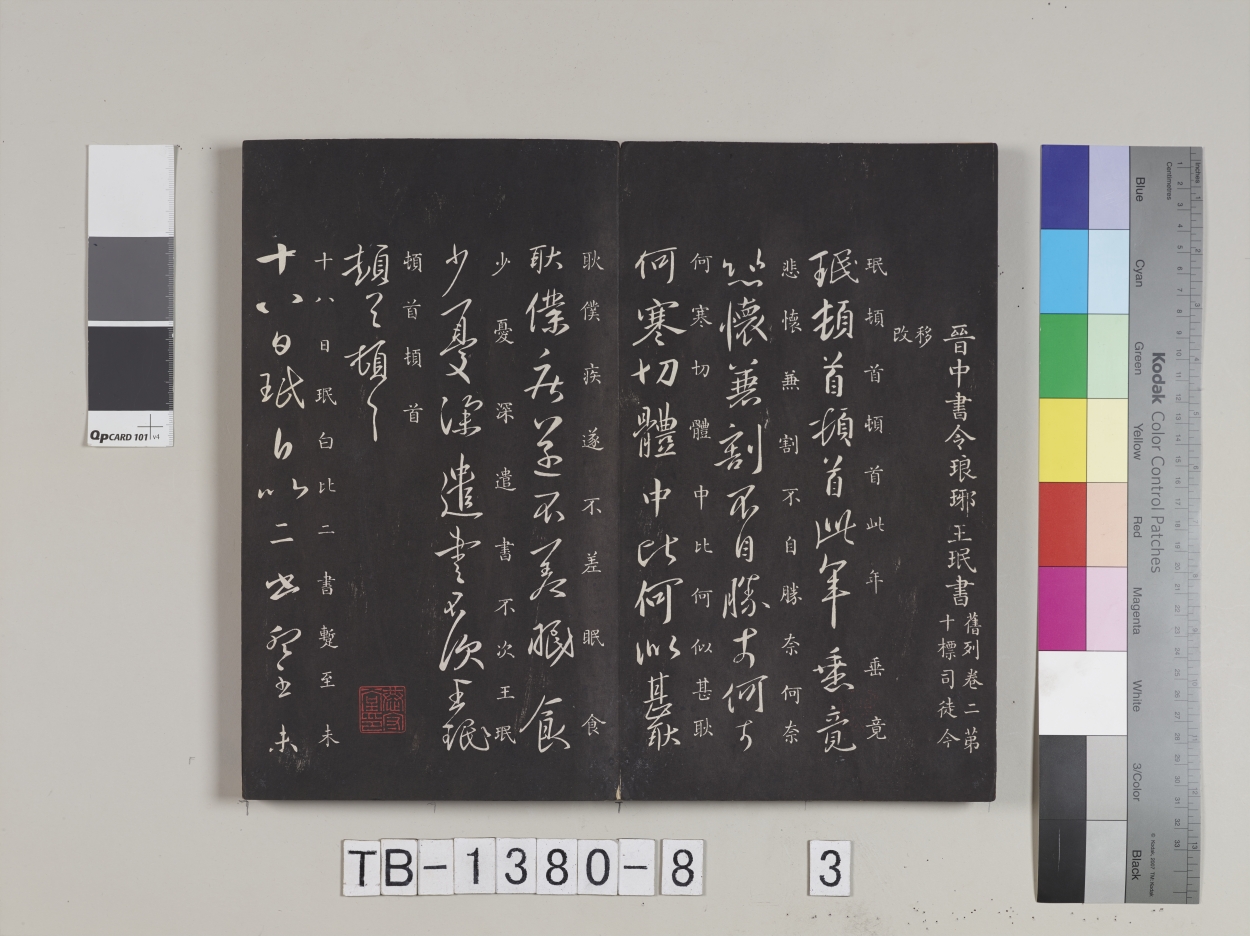 晉中書令琅琊王珉書
舊列卷二第
十標司徒今
移
改
珉頓首頓首此年垂竟
珉頓首頓首此年垂竟
悲懷兼割不自勝奈何奈
悲懷兼割不自勝奈何奈
何寒切體中比何似甚耿
何寒切體中比何似甚耿
耿僕疾遂不差眠食
耿僕疾遂不差眠食
少憂深遣書不次王珉
少憂深遣書不次王珉
頓首頓首
頓首頓首
十八日珉白比二書蹔至未
十八日珉白比二書蹔至未
QPCARD 101 v4
Kodak Color Control Patches
Inches
Centimetres
Blue
Cyan
Green
Yellow
Red
Magenta
White
3/Color
Black
TB-1380-8
3